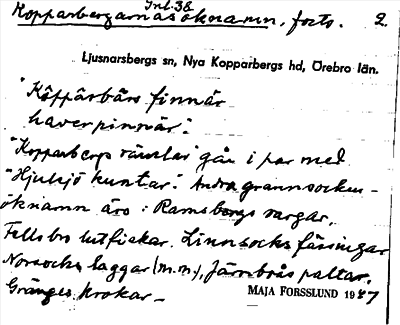 Inl. 38
Kopparbergarnas öknamn, forts. 2.
Ljusnarsbergs sn, Nya Kopparbergs hd, Örebro län.
"Kåppårbårs finnär
haverpinnär".
"Kopparbergs räntlar" går i par med
"Hjulsjö kuntar". Andra grannsocken-
öknamn äro: Ramsbergs vargar,
Fellsbro lutfiskar. Linnsocks fäsingar
Norsocks laggar (m.m.), Järnboås paltar.
Grängesg krokar –
MAJA FORSSLUND 1927